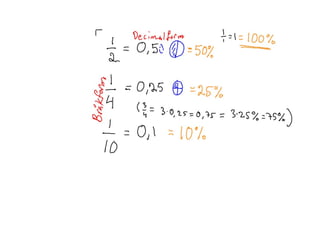 Decimalform
1/1 = 1 = 100%
1/2 = 0,5 = 50%
Bråkform
1/4 = 0,25 = 25%
(3/4 = 3·0,25 = 0,75 = 3·25% = 75%)
1/10 = 0,1 = 10%